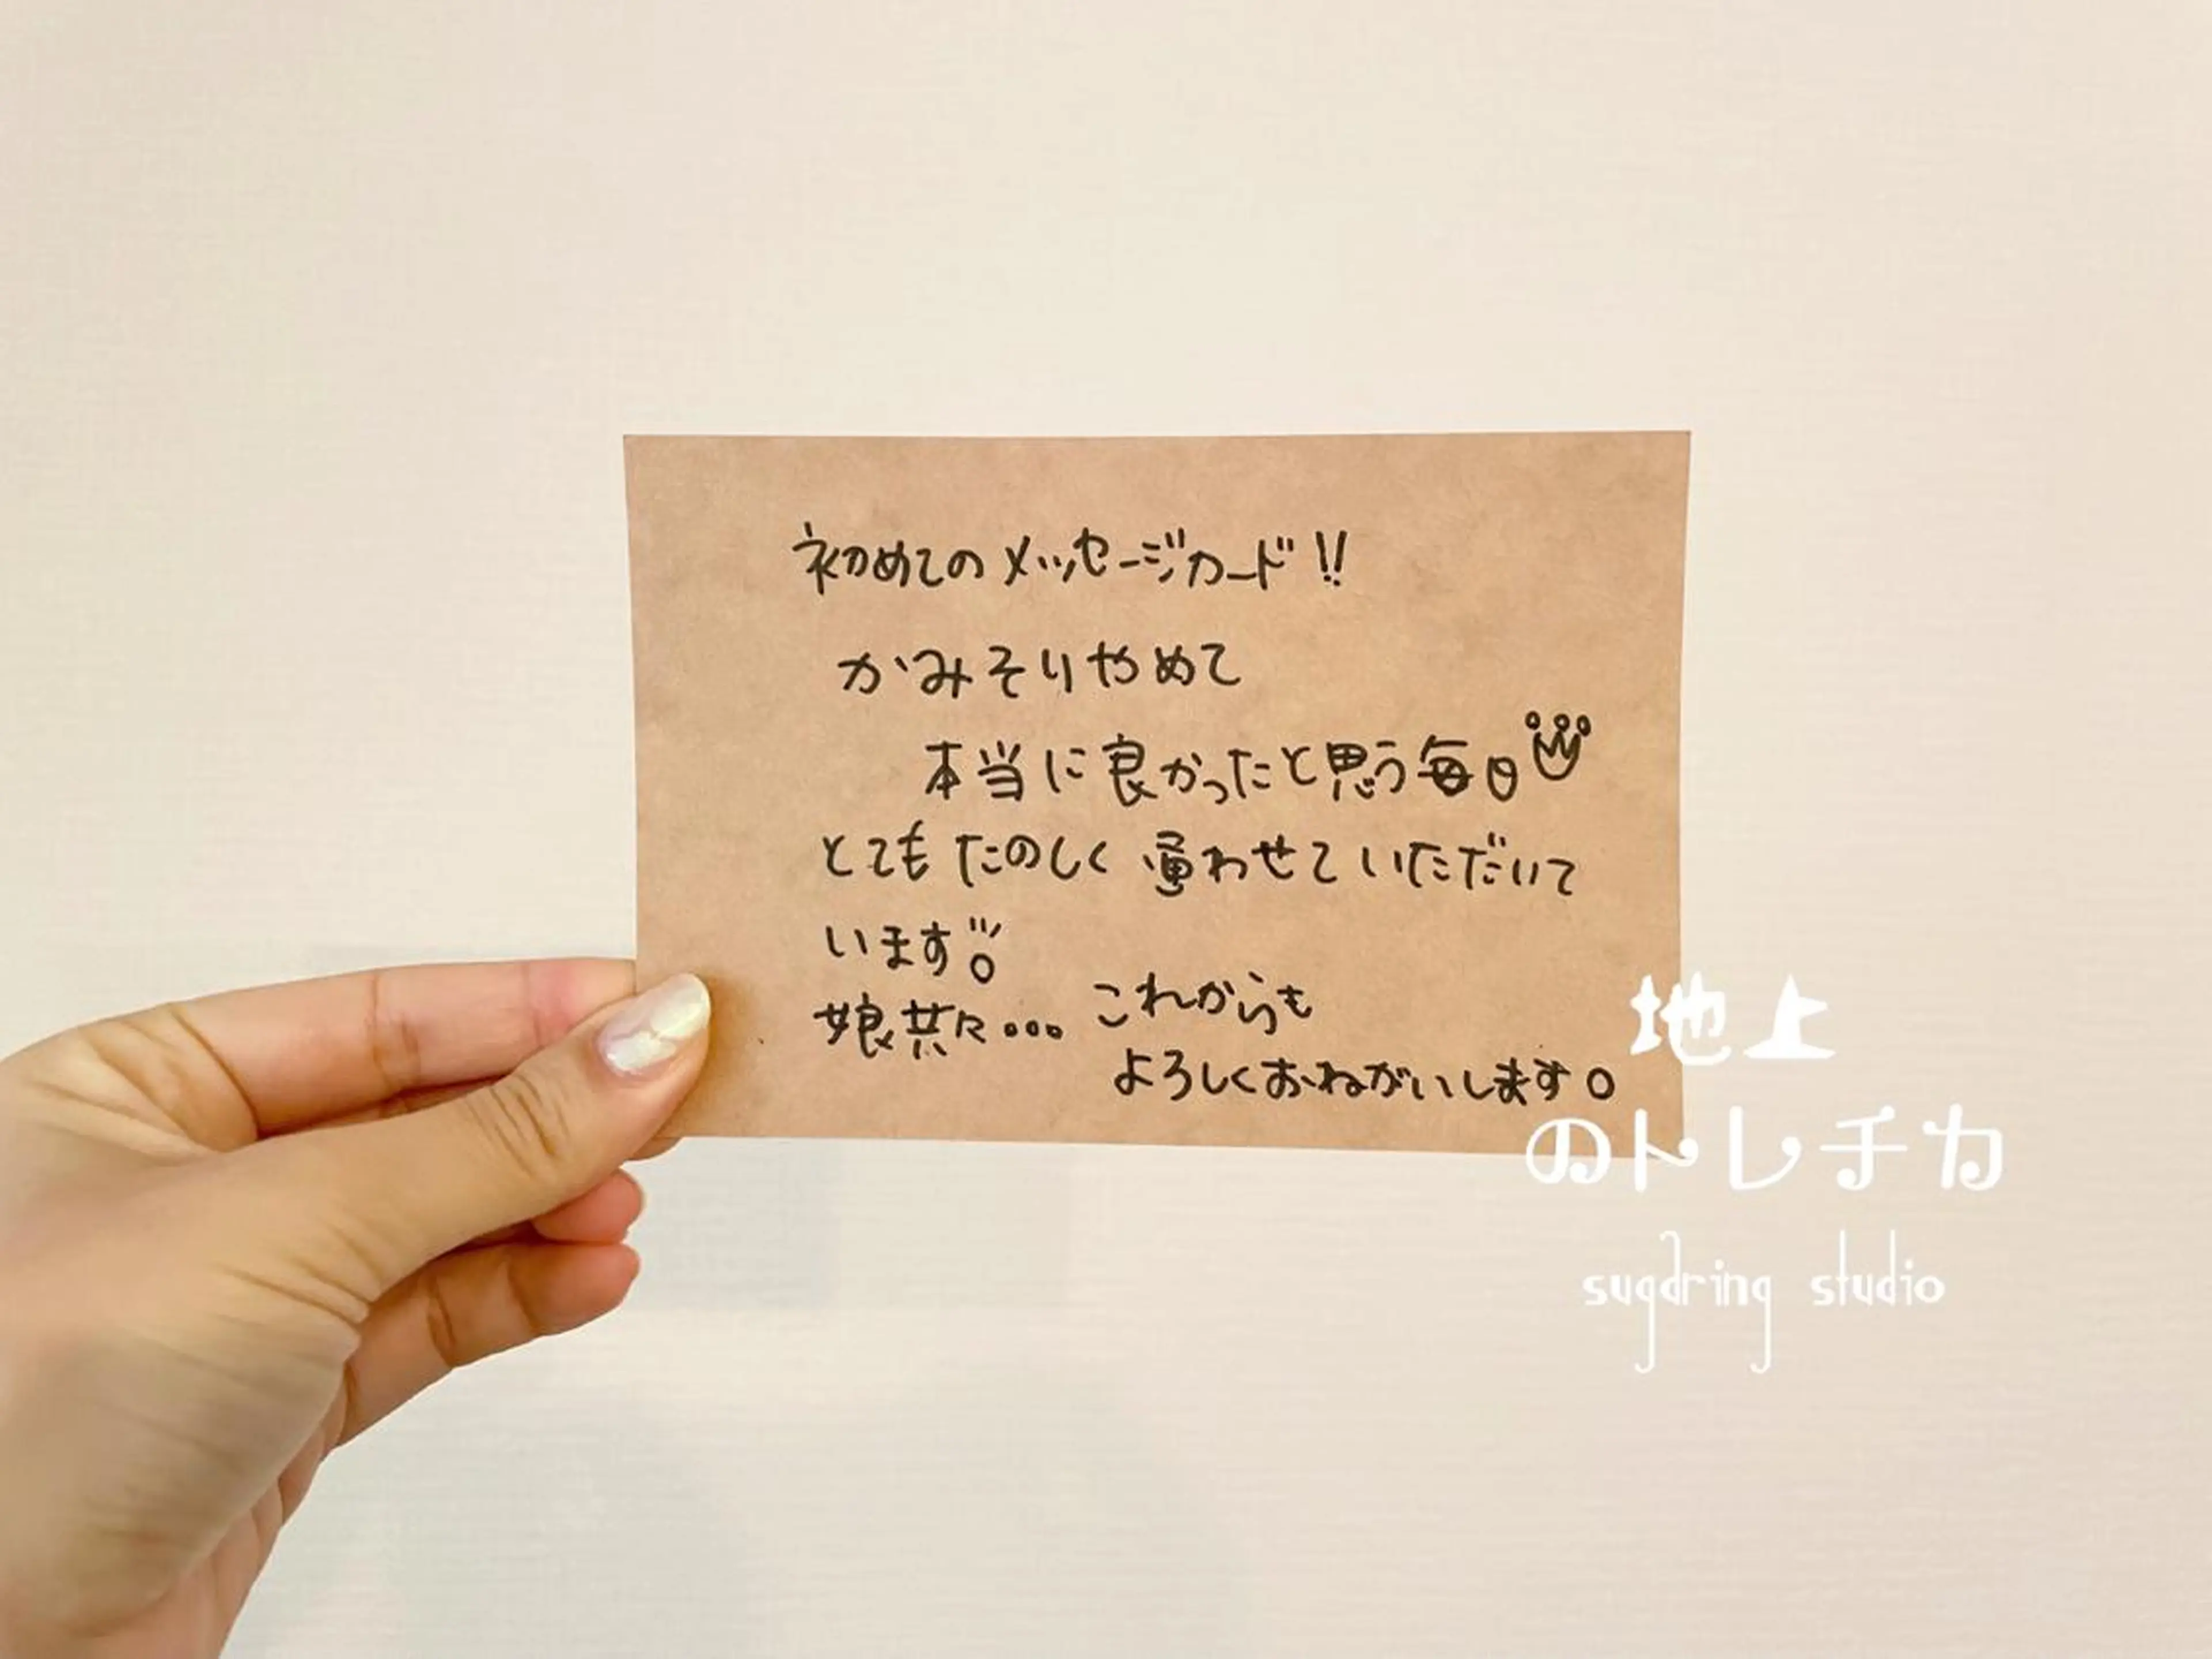 初めてのメッセージカード!!
かみそりやめて
本当に良かったと思う毎日
とてもたのしく通わせていただいて
います。
娘共々... これからも
よろしくおねがいします。
地上
のトレチカ
sugaring studio